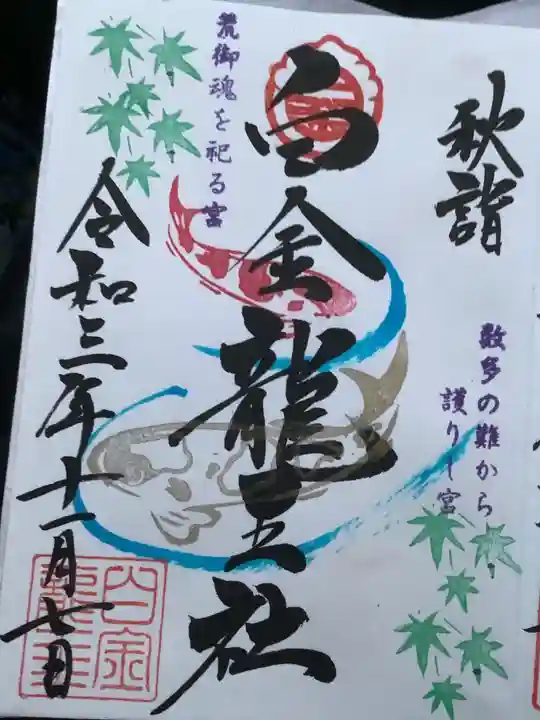 秋詣
数多の難から
護りし宮
白金龍王社
荒御魂を祀る宮
令和三年十一月七日
白金
龍王